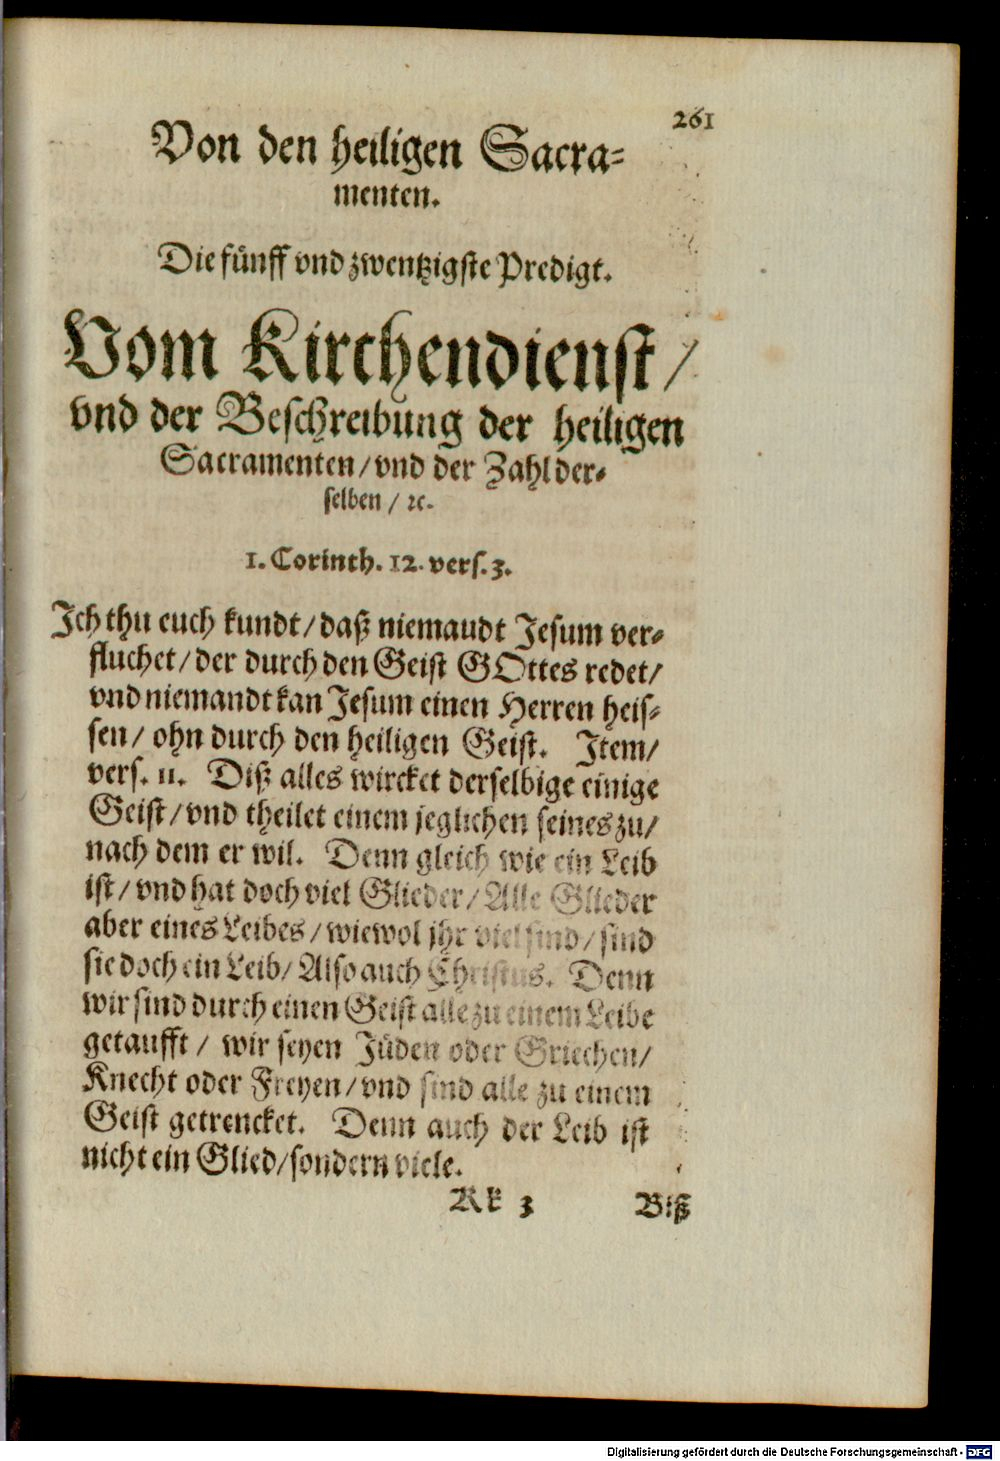 261
Von den heiligen Sacra-
menten.
Die fünff vnd zwentzigste Predigt.
Vom Kirchendienst/
vnd der Beschreibung der heiligen
Sacramenten/ vnd der Zahl der-
selben/ ꝛc.
1. Corinth. 12. vers. 3.
Ich thu euch kundt/ daß niemaudt Jesum ver-
fluchet/ der durch den Geist GOttes redet/
vnd niemandt kan Jesum einen Herren heis-
sen/ ohn durch den heiligen Geist. Item/
vers. 11. Diß alles wircket derselbige einige
Geist/ vnd theilet einem jeglichen seines zu/
nach dem er wil. Denn gleich wie ein Leib
ist/ vnd hat doch viel Glieder/ Alle Glieder
aber eines Leibes/ wiewol jhr viel sind/ sind
sie doch ein Leib/ Also auch Christus. Denn
wir sind durch einen Geist alle zu einem Leibe
getaufft/ wir seyen Jüden oder Griechen/
Knecht oder Freyen/ vnd sind alle zu einem
Geist getrencket. Denn auch der Leib ist
nicht ein Glied/ sondern viele.
Kk 3 Biß
Digitalisierung gefördert durch die Deutsche Forschungsgemeinschaft - DFG